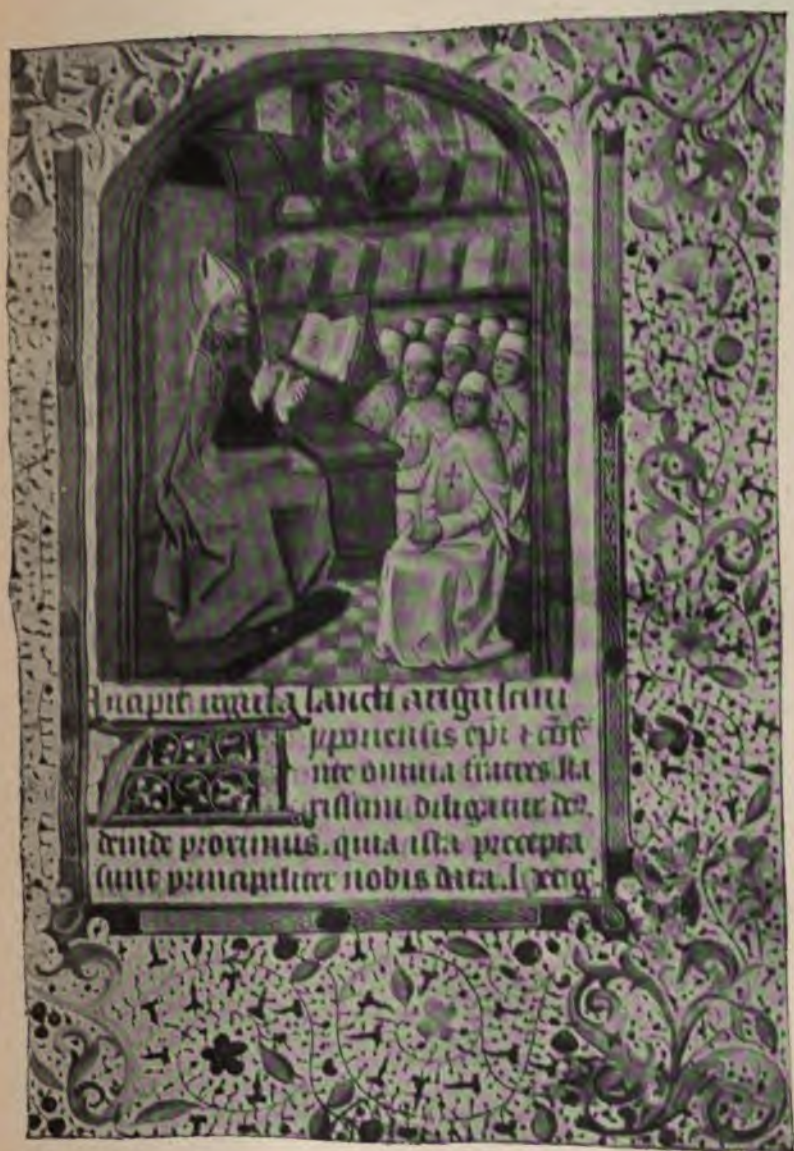 Incipit regula sancti augustini
yponensis epi & cōf
nte omnia fratres ka
rissimi diligatur de⁹,
deinde proximus. quia ista precepta
sunt principaliter nobis data.